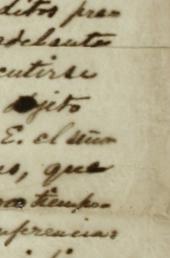 ditos pre
adelante
cutirse
objeto
E. el señor
s, que
tiempo
nferencias